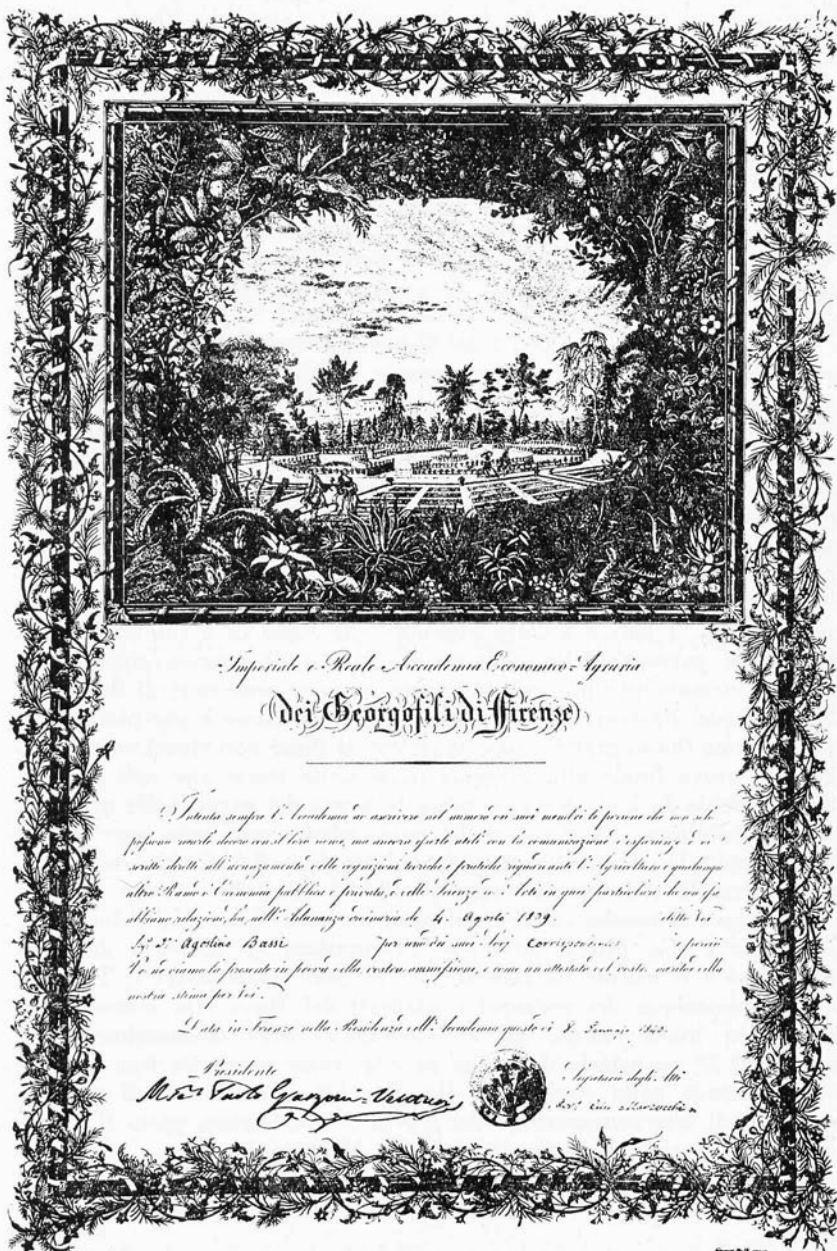 Imperiale e Reale Accademia Economico-Agraria
dei Georgofili di Firenze
Intenta sempre l'Accademia ad ascrivere nel numero dei suoi membri le persone che non solo
possono recarle decoro con il loro nome, ma ancora esserle utili con la comunicazione d'esperienze e di
scritti diretti all'avanzamento delle cognizioni teoriche e pratiche riguardanti l'Agricoltura e qualunque
altro Ramo d'Economia pubblica e privata, e delle Scienze ed Arti in quei particolari che con essa
abbiano relazione, ha, nell'Adunanza ordinaria de 4 Agosto 1839 eletto Voi
Sigr. Dr. Agostino Bassi per uno dei suoi Socj Corrispondenti e perciò
Ve ne diamo la presente in prova della vostra ammissione, e come un attestato del vostro merito e della
nostra stima per Voi.
Data in Firenze nella Residenza dell'Accademia questo dì 8. Gennaio
Presidente
Segretario degli Atti